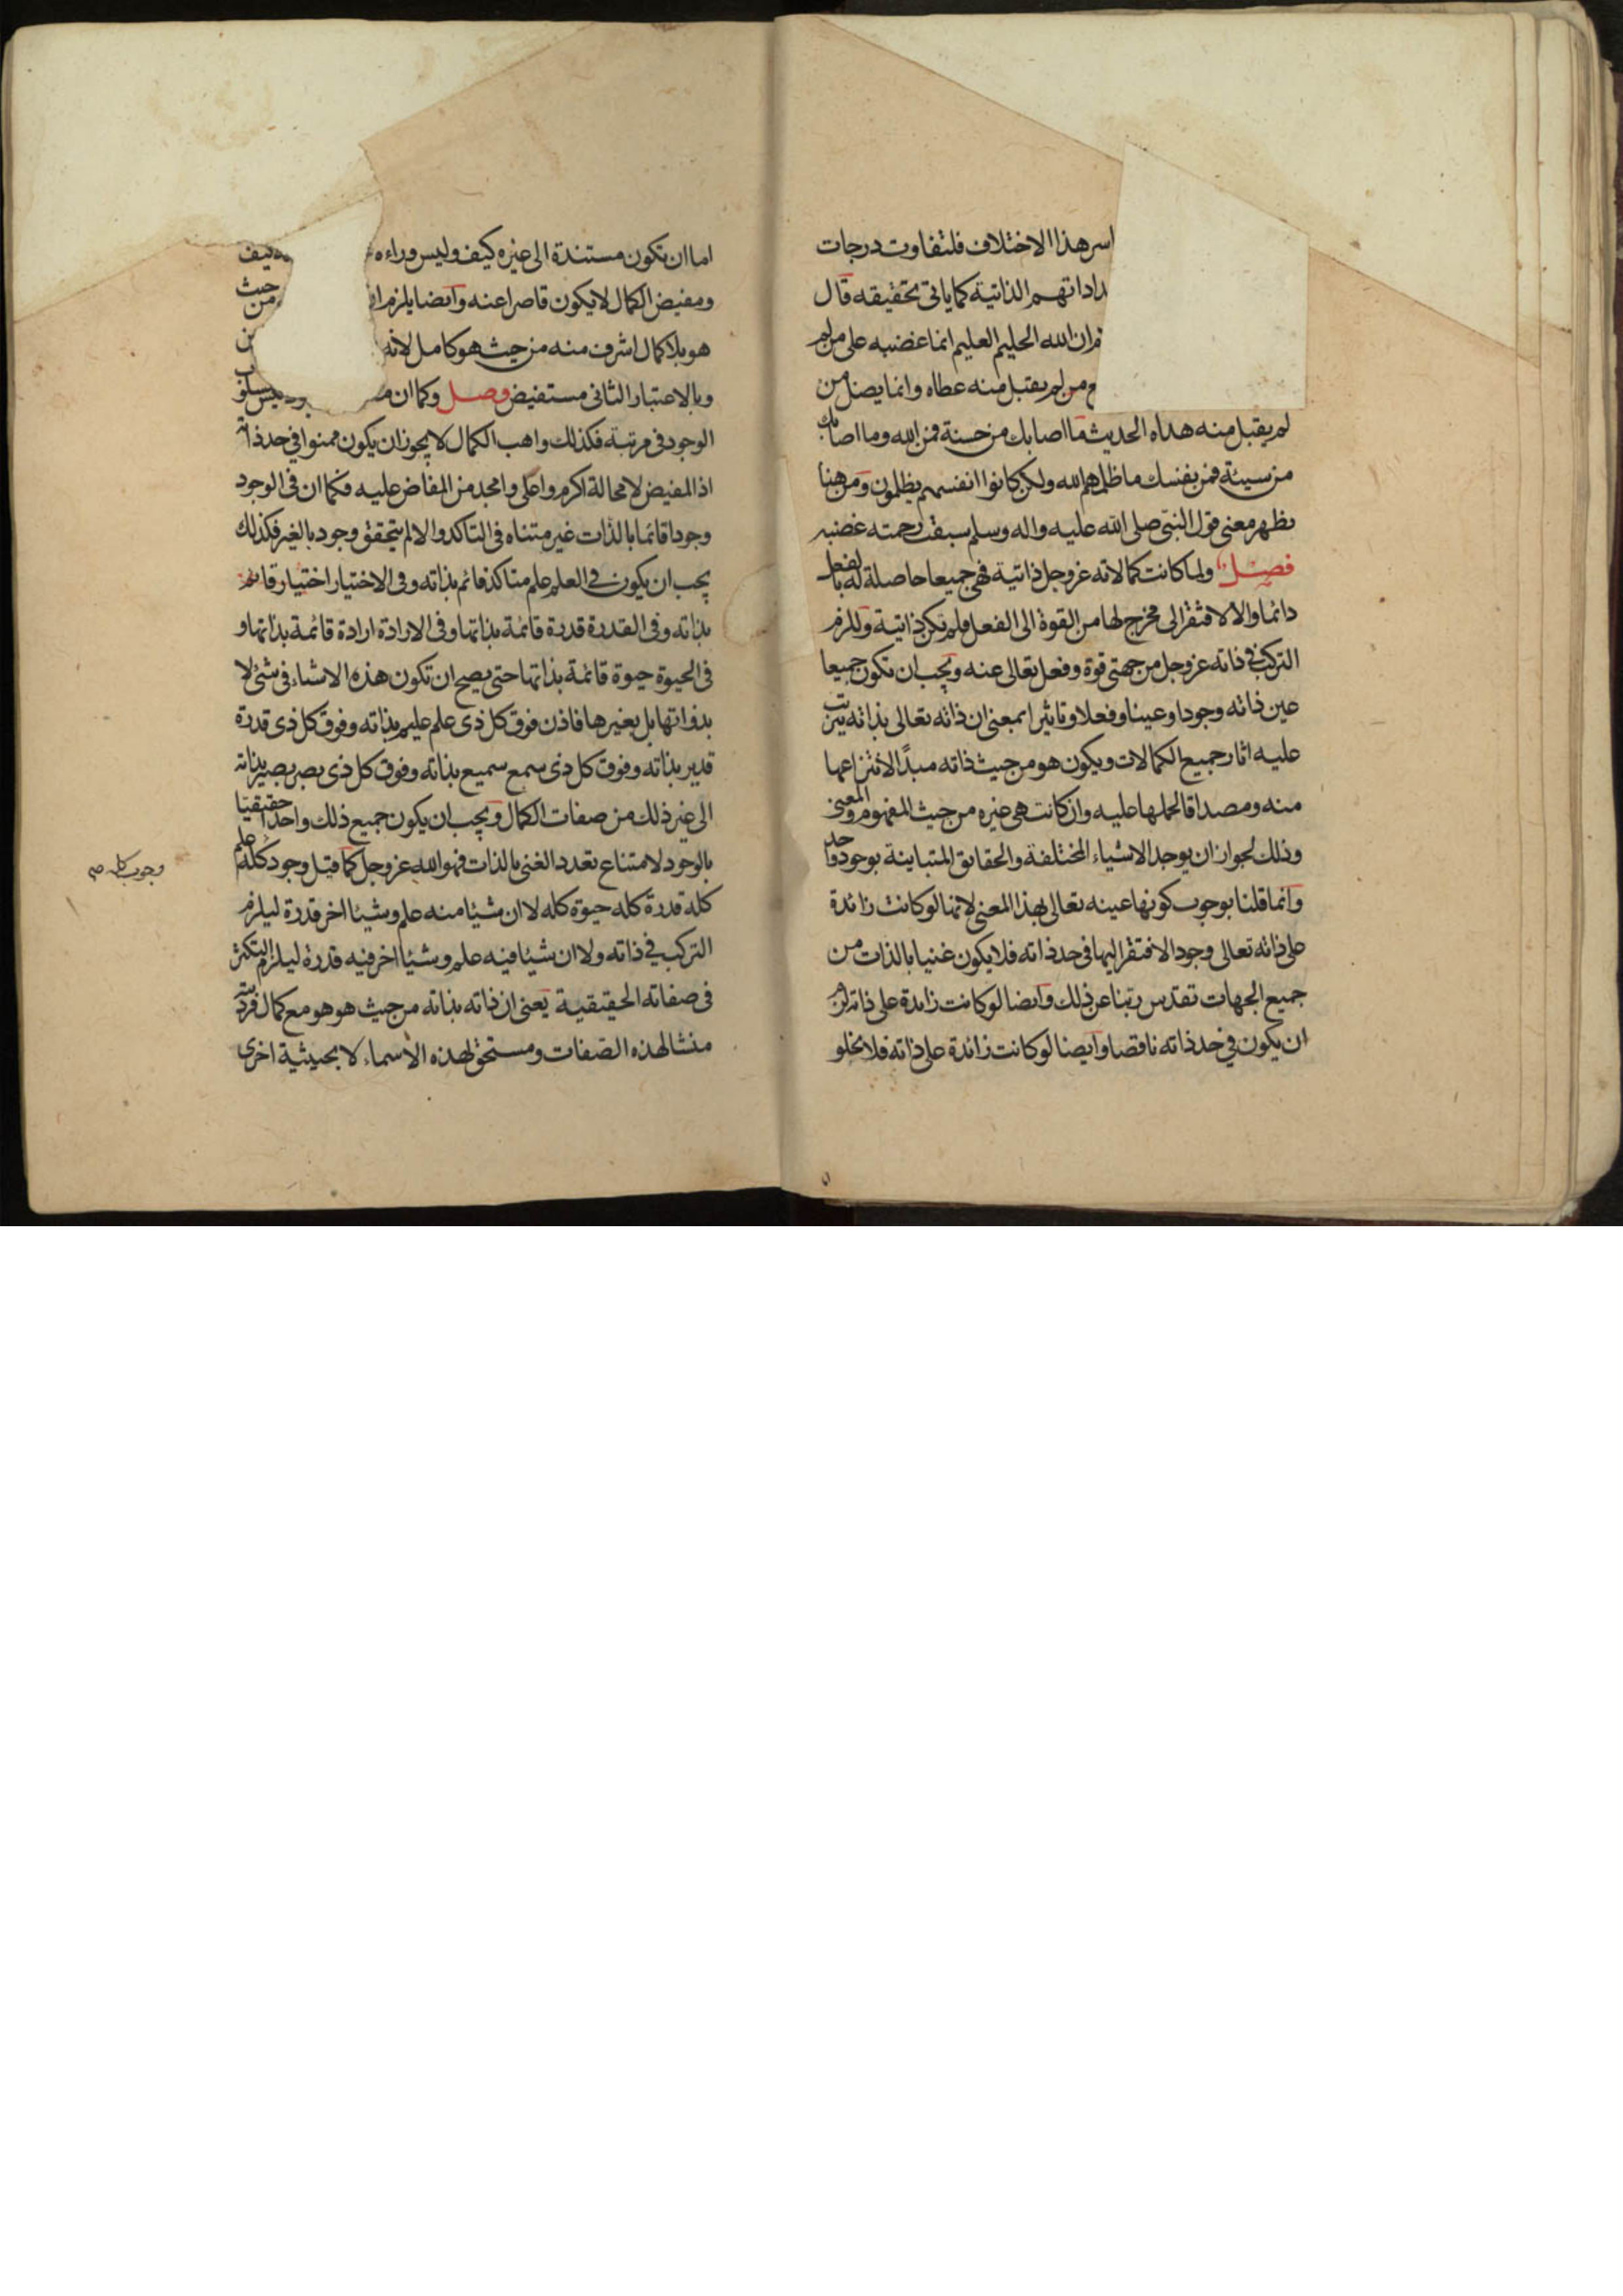 سر هذا الاختلاف فلتفاوت درجات
الذاتية كما ياتى تحقيقه قال
ان الله الحليم العليم انما غضبه على من لم
و من لم يقبل منه عطاه وانما يضل من
لم يقبل منه هداه الحديث ما اصابك من حسنة فمن الله وما اصابك
من سيئة فمن نفسك ما ظلمهم الله ولكن كانوا انفسهم يظلمون ومن هنا
يظهر معنى قول النبى صلى الله عليه واله وسلم سبقت رحمته غضبه
فصل ولما كانت كمالاته عز وجل ذاتية فهى جميعا حاصلة له بالفعل
دائما والا لافتقر الى مخرج لها من القوة الى الفعل فلم تكن ذاتية وللزم
التركب فى ذاته عز وجل من جهتى قوة وفعل تعالى عنه ويجب ان تكون جميعا
عين ذاته وجودا وعينا وفعلا وتاثيرا بمعنى ان ذاته تعالى بذاته يترتب
عليه اثار جميع الكمالات ويكون هو من حيث ذاته مبدأ لانتزاعها
منه ومصداقا لحملها عليه وان كانت هى غيره من حيث المفهوم والمعنى
وذلك لجواز ان يوجد الاشياء المختلفة والحقايق المتباينة بوجود واحد
وانما قلنا بوجوب كونها عينه تعالى بهذا المعنى لانها لو كانت زائدة
على ذاته تعالى وجودا لافتقر اليها فى حد ذاته فلا يكون غنيا بالذات من
جميع الجهات تقدس ربنا عن ذلك وايضا لو كانت زايدة على ذاته لزم
ان يكون فى حد ذاته ناقصا وايضا لو كانت زائدة على ذاته فلا يخلو
اما ان تكون مستندة الى غيره كيف وليس وراءه كيف
ومفيض الكمال لا يكون قاصرا عنه وايضا يلزم من حيث
هو بلا كمال اشرف منه من حيث هو كامل لانه
وبالاعتبار الثانى مستفيض وصل وكما ان
الوجود فى مرتبة فكذلك واهب الكمال لا يجوز ان يكون ممنوا فى حد ذاته
اذ المفيض لا محالة اكرم واعلى وامجد من المفاض عليه فكما ان فى الوجود
وجودا قائما بالذات غير متناه فى التاكد والا لم يتحقق وجود بالغير فكذلك
يجب ان يكون فى العلم علم متاكد قائم بذاته وفى الاختيار اختيار قائم
بذاته وفى القدرة قدرة قائمة بذاتها وفى الارادة ارادة قائمة بذاتها و
فى الحيوة حيوة قائمة بذاتها حتى يصح ان تكون هذه الاشياء فى شئ لا
بذواتها بل بغيرها فاذن فوق كل ذى علم عليم بذاته وفوق كل ذى قدرة
قدير بذاته وفوق كل ذى سمع سميع بذاته وفوق كل ذى بصر بصير بذاته
الى غير ذلك من صفات الكمال ويجب ان يكون جميع ذلك واحدا حقيقيا
بالوجود لامتناع تعدد الغنى بالذات فهو الله عز وجل كما قيل وجود كله علم
وجوب كله صح
كله قدرة كله حيوة كله لا ان شيئا منه علم وشيئا اخر قدرة ليلزم
التركب فى ذاته ولا ان شيئا فيه علم وشيئا اخر فيه قدرة ليلزم التكثر
فى صفاته الحقيقية يعنى ان ذاته بذاته من حيث هو هو مع كمال فرديته
منشا لهذه الصفات ومستحق لهذه الاسماء لا بحيثية اخرى